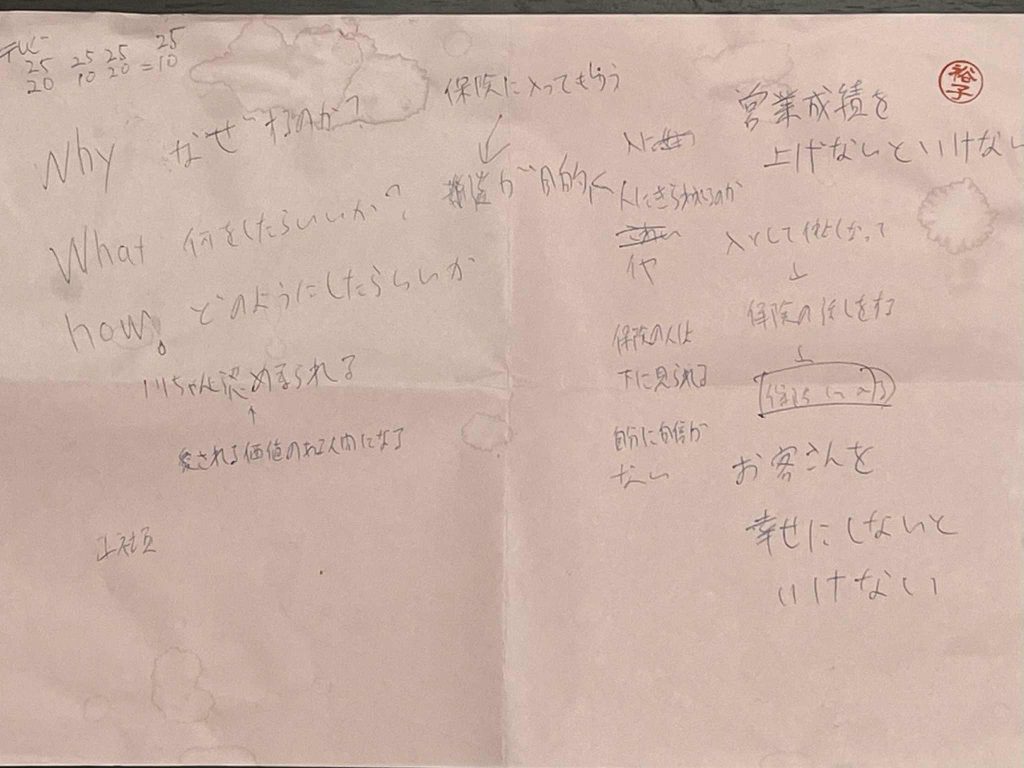 テレビ
25 25 25 25
20 10 20 = 10
Why なぜするのか?
What 何をしたらいいか?
how. どのようにしたらいいか
認められる
↑
愛される価値のある人間になる
正社員
保険に入ってもらう
が目的
人にきらわれるのか
イヤ
保険の人は
下に見られる
自分に自信が
ない
裕子
営業成績を
上げないといけない
人として
↓
保険の話しをする
↓
お客さんを
幸せにしないと
いけない